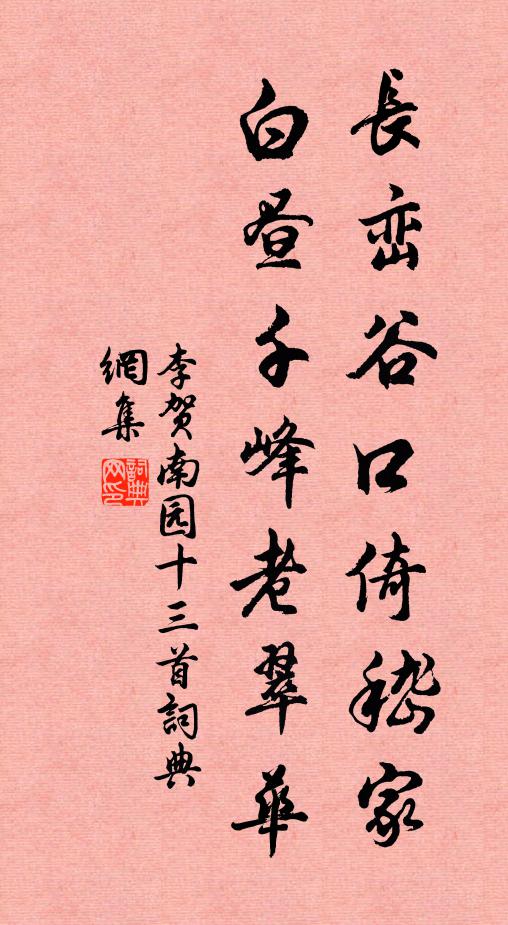 長峦谷口倚嵇家
白昼千峰老翠華
李贺南园十三首詞典
網集
詞典网印